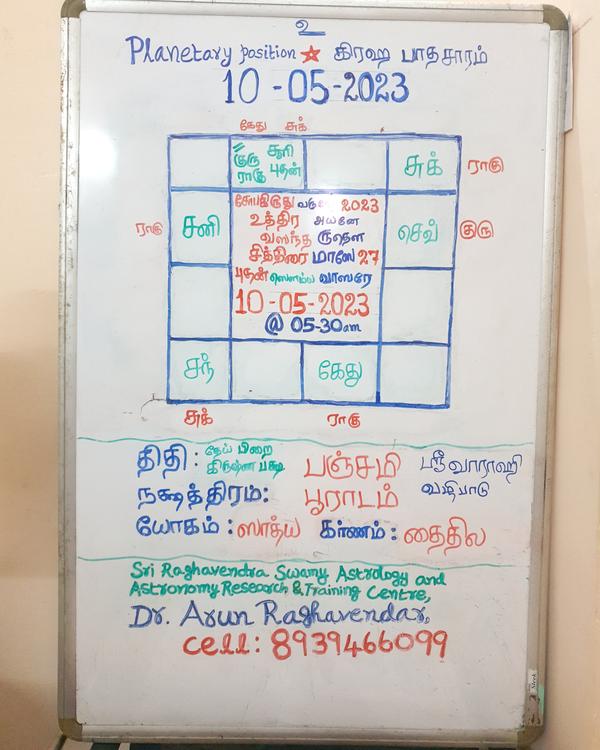 உ
Planetary position ★ கிரஹ பாதசாரம்
10-05-2023
கேது சுக்
குரு சூரி
ராகு புதன்
சுக்
ராகு
ராகு
சனி
சோபகிருது 2023
உத்திர அயனே
வஸந்த ருதௌ
சித்திரை மாஸே 27
புதன் ஸௌம்ய வாஸரே
10-05-2023
@ 05-30am
செவ்
குரு
சந்
கேது
சுக்
ராகு
திதி : தேய் பிறை
கிருஷ்ண பக்ஷ
பஞ்சமி
ஸ்ரீ வாராஹி
வழிபாடு
நக்ஷத்திரம்: பூராடம்
யோகம் : ஸாத்ய கர்ணம் : தைதில
Sri Raghavendra Swamy Astrology and
Astronomy Research & Training Centre,
Dr. Arun Raghavendar,
cell: 8939466099